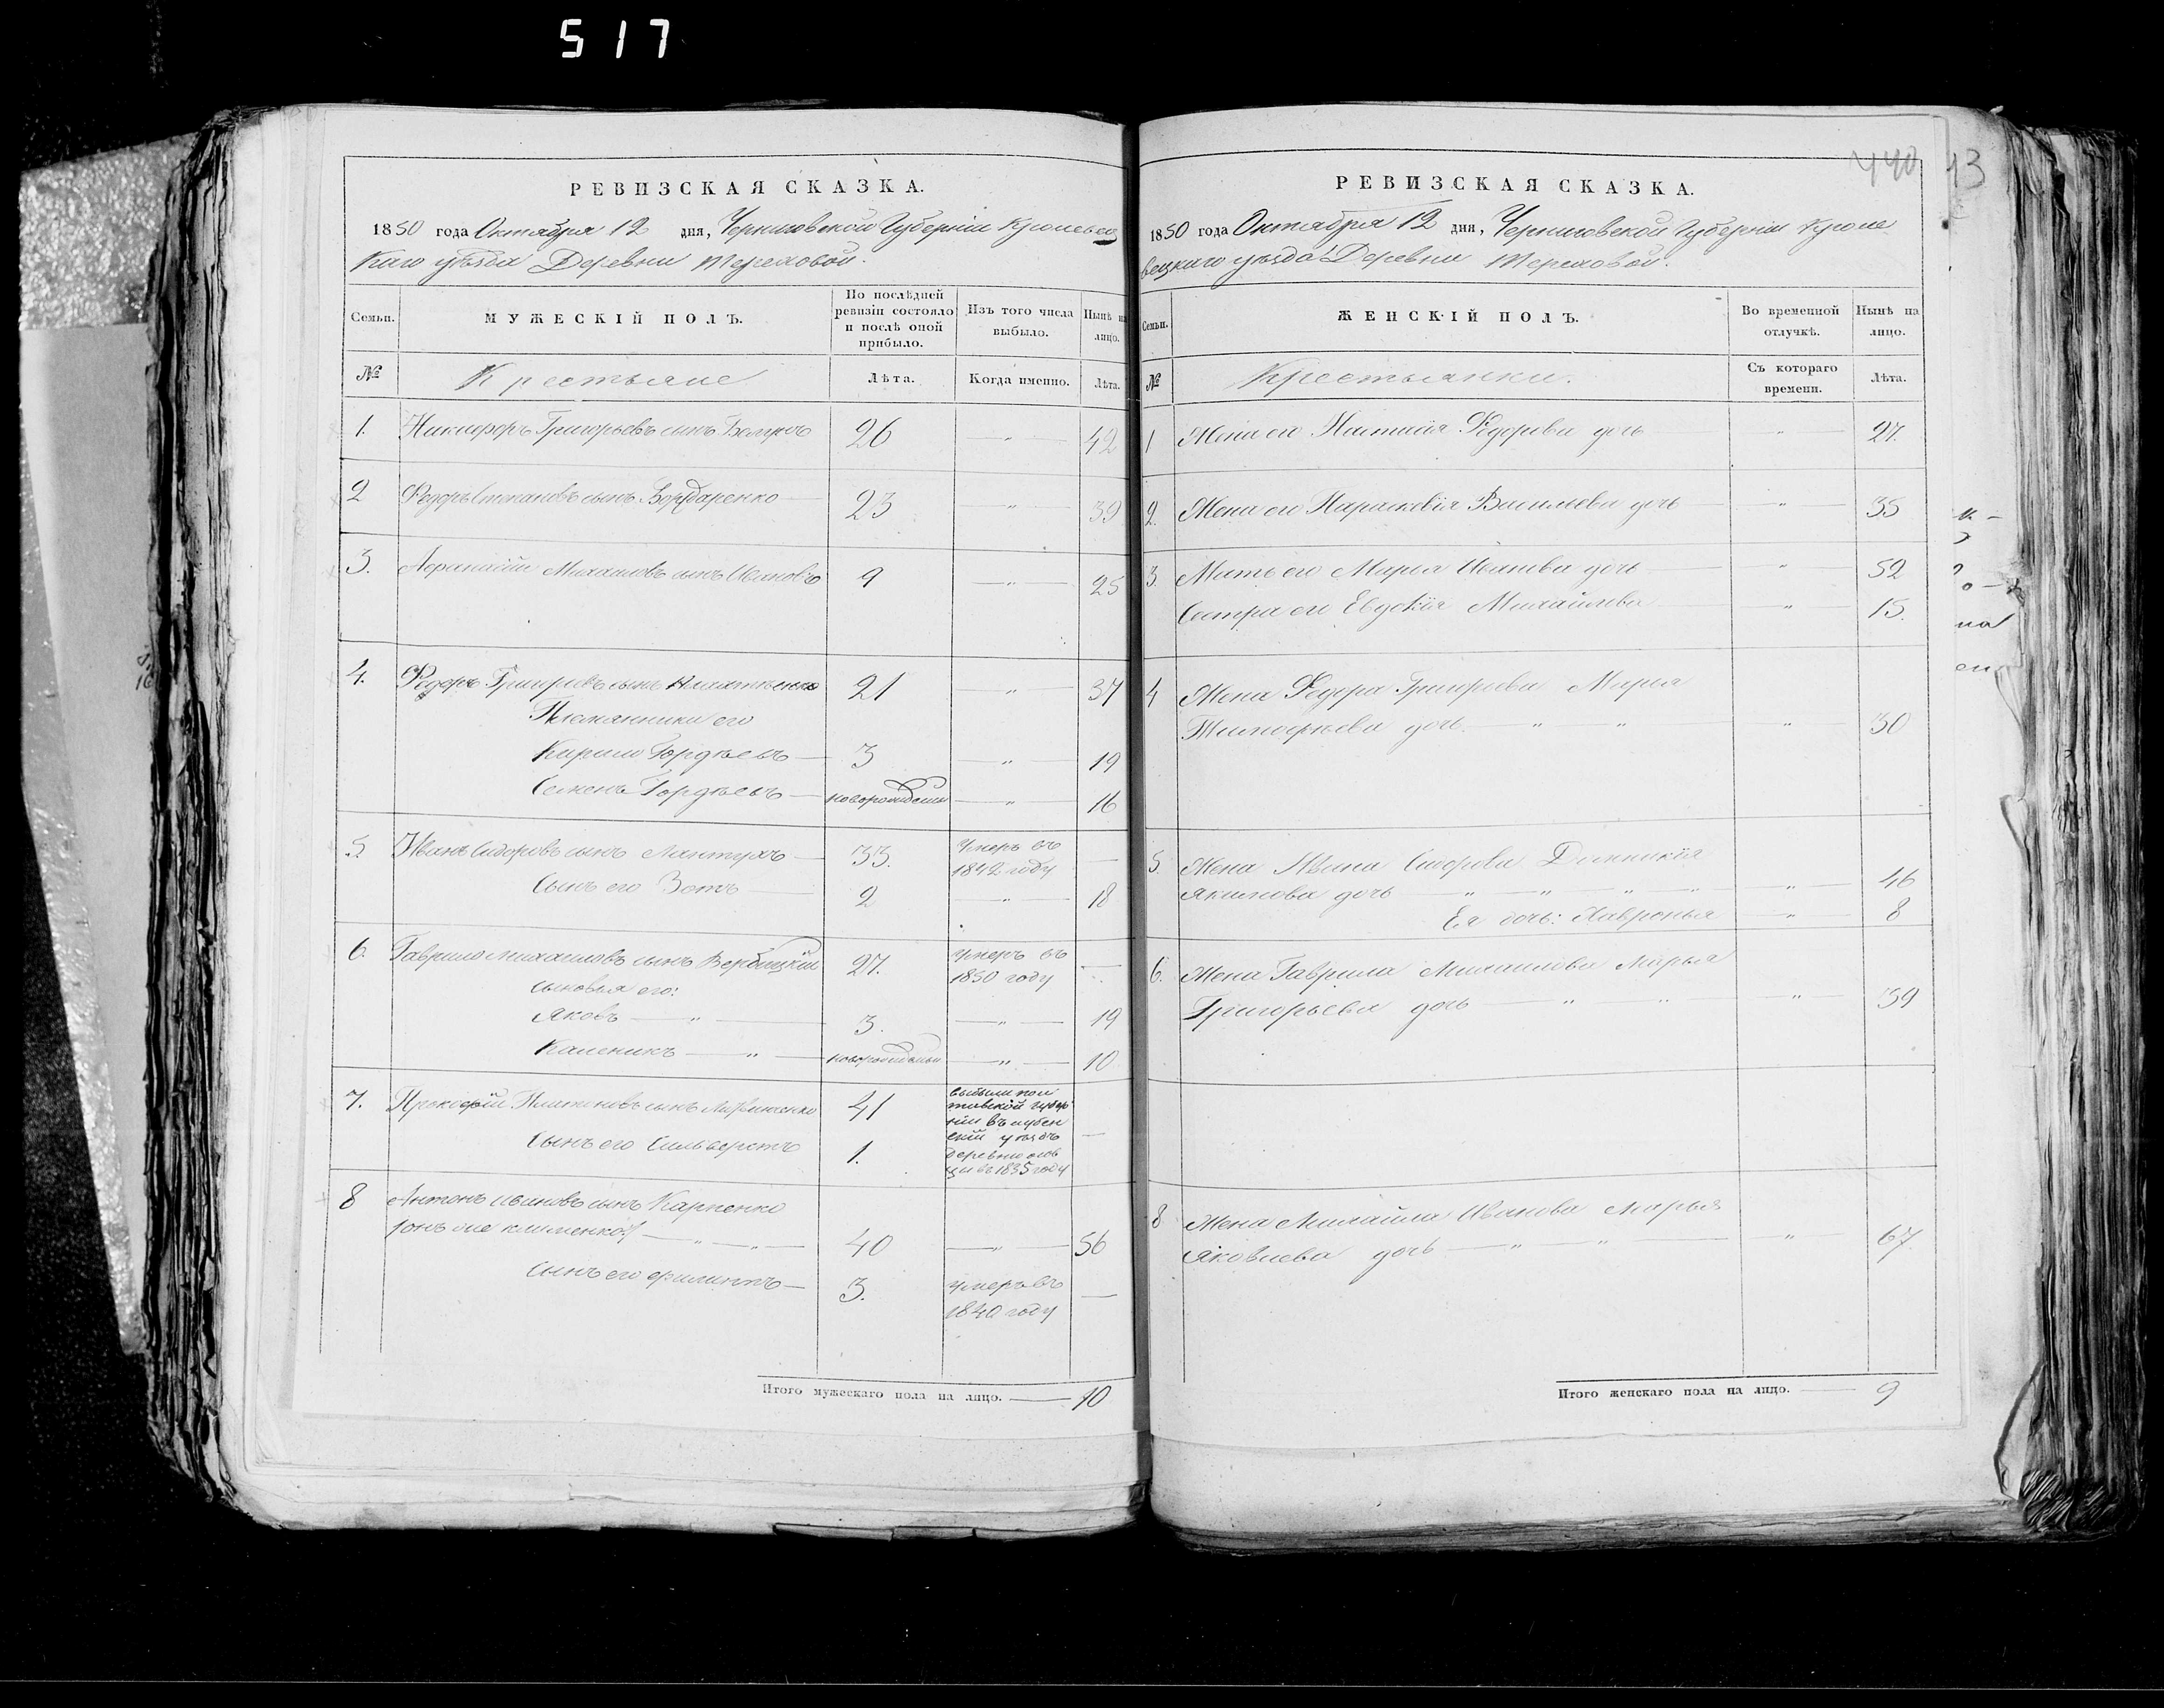 517
РЕВИЗСКАЯ СКАЗКА.
1850 года Октября 12 дня, Черниговской Губерніи Кролевец
каго уѣзда Деревни Тереховой.
Семьи.
МУЖЕСКІЙ ПОЛЪ.
По послѣдней
ревизіи состояло
и послѣ оной
прибыло.
Изъ того числа
выбыло.
Нынѣ на
лицо.
№
Крестьяне
Лѣта.
Когда именно.
Лѣта.
1. Никифоръ Григорьевъ сынъ 26 — " — 42
2 Федоръ Степановъ сынъ Бондаренко — 23 — " — 39
3. Афанасій Михаиловъ сынъ Ивановъ 9 — " — 25
4. Федоръ Григорьевъ сынъ 21 — " — 37
Племянники его
Кирило Гордѣевъ — 3 — " — 19
Семенъ Гордѣевъ — новорожденный — " — 16
5. Иванъ Сидоровъ сынъ Лантухъ — 33. умеръ въ
1842 году —
Сынъ его Зотъ — 2 — " — 18
6. Гаврило Михаиловъ сынъ Вербицкій 27. умеръ въ
1850 году —
сыновья его:
Яковъ — " — 3. — " — 19
Каленикъ — " — новорожденный — " — 10
7. Прокофій Платоновъ сынъ Литвиненко 41 выбыли пол
тавской губер
ніи въ лубен
скій уѣздъ
Сынъ его Сильверстъ 1. —
деревни
въ 1835 году
8 Антонъ Ивановъ сынъ Карпенко
/онъ же клименко/ — " — " — 40 — " — 56
Сынъ его филиппъ — 3. умеръ въ
1840 году —
Итого мужескаго пола на лицо. — 10
440
13
РЕВИЗСКАЯ СКАЗКА.
1850 года Октября 12 дня, Черниговской Губерніи Кроле
вецкаго уѣзда Деревни Тереховой.
Семьи.
ЖЕНСКІЙ ПОЛЪ.
Во временной
отлучкѣ.
Нынѣ на
лицо.
№
Крестьянки.
Съ котораго
времени.
Лѣта.
1 Жена его Настасія Федорова дочь — " — 27.
2. Жена его Параскевія Василіева дочь — " — 35
3. Мать его Марья Иванова дочь — " — 52
Сестра его Евдокія Михайлова — " — 15.
4 Жена Федора Григорьева Марья
Тимофѣева дочь — " — " — " — 30
5. Жена Ивана Сидорова Домникія
Якимова дочь — " — " — " — " — " — 46
Ея дочь: Хавронья — " — 8
6. Жена Гаврила Михаилова Марья
Григорьева дочь — " — " — " — 39
8 Жена Михайла Иванова Марья
Яковлева дочь — " — " — " — 67
Итого женскаго пола на лицо. — 9